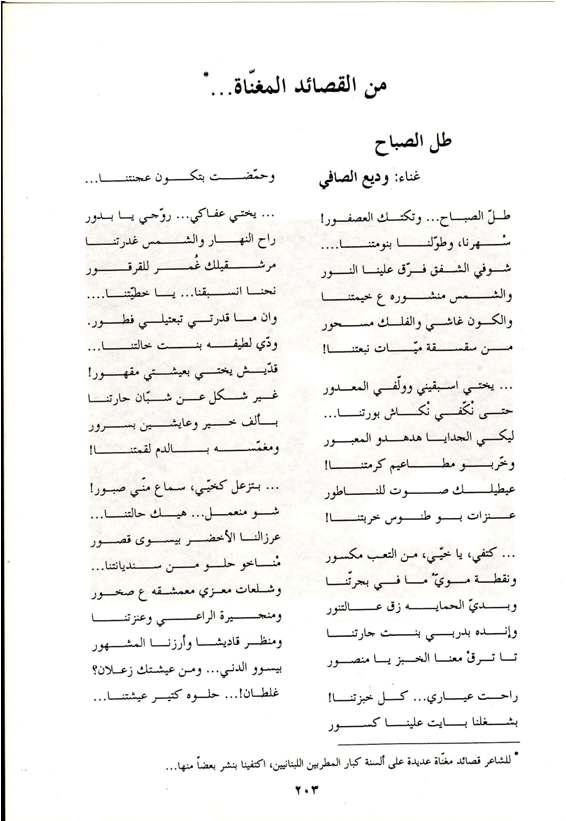 من القصائد المغنّاة...*
طل الصباح
غناء: وديع الصافي
طلّ الصبـاح... وتكتـك العصفـور!
سْـهرنا، وطوّلنـا بنومتنـا....
شـوفي الشفق فـرّق علينـا النـور
والشمـس منشـوره ع خيمتنـا
والكـون غاشـي والفلـك مسـحور
مـن سقسـقة ميّـات نبعتنـا!
... يختـي اسـبقيني وولّفـي المعـدور
حتـى نْكفّـي نْكـاش بورتنـا...
ليكـي الجدايـا هدهـدو المعبـور
وخّربـو مطـاعيم كرمتنـا!
عيطيلـك صـوت للنـاطور
عـنزات بـو طنـوس خربتنـا!
... كتفي، يا خيّي، مـن التعب مكسـور
ونقطـة مـويّ مـا فـي بجرتّنـا
وبـديّ الحمايـه زق عـالتنور
وإنـده بدربـي بنـت حارتنـا
تـا تـرقْ معنـا الخبـز يـا منصـور
راحت عيـاري... كـل خبزتنـا!
بشـغلنا بـايت علينـا كسـور
وحمّضـت بتكـون عجنتنـا...
... يختـي عفـاكي... روّحـي يـا بـدور
راح النهـار والشـمس غدرتنـا
مرشـقيلك غُمـر للقرقـور
نحنـا انسـبقنا... يـا خطيّتنـا....
وان مـا قدرتـي تبعتيلـي فطـور.
ودّي لطيفـه بنـت خالتنـا...
قدّيـش يختـي بعيشـتي مقهـور!
غـير شـكل عـن شـبّان حارتنـا
بـألف خـير وعايشـين بسـرور
ومغمّسـه بـالدم لقمتنـا!
... بـتزعل كخيّـي، سـماع منّـي صبـور!
شـو منعمـل... هيـك حالتنـا...
عرزالنـا الأخضـر بيسـوى قصـور
مْنـاخو حلـو مـن سـنديانتنا...
وشـلعات معـزي معمشـقه ع صخـور
ومنجـيرة الراعـي وعنزتنـا
ومنظـر قاديشـا وأرزنـا المشـهور
بيسـوو الدنـي... ومـن عيشـتك زعـلان؟
غلطـان!... حلـوه كتـير عيشـتنا...
* للشاعر قصائد مغنّاة عديدة على ألسنة كبار المطربين اللبنانيين، اكتفينا بنشر بعضاً منها...
٢٠٣